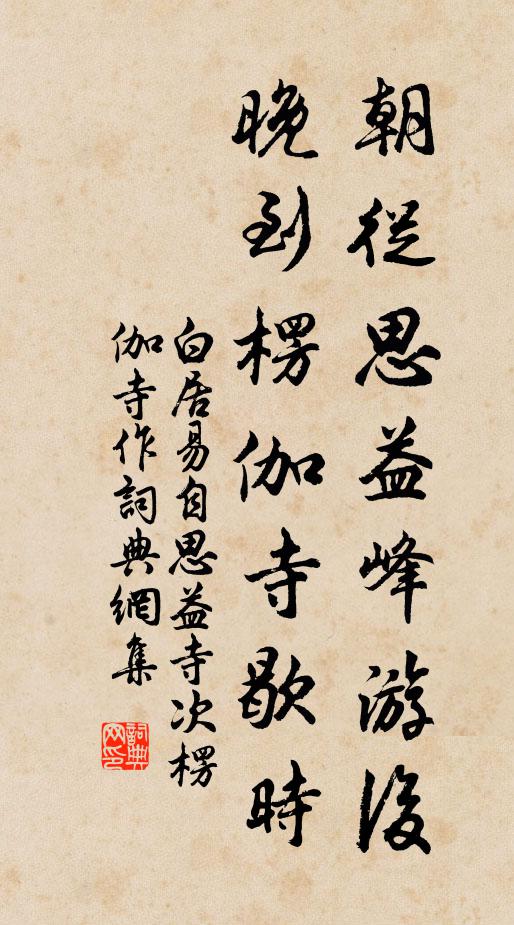 朝從思益峰游後
晚到楞伽寺歇時
白居易自思益寺次楞
伽寺作詞典網集
詞典网印